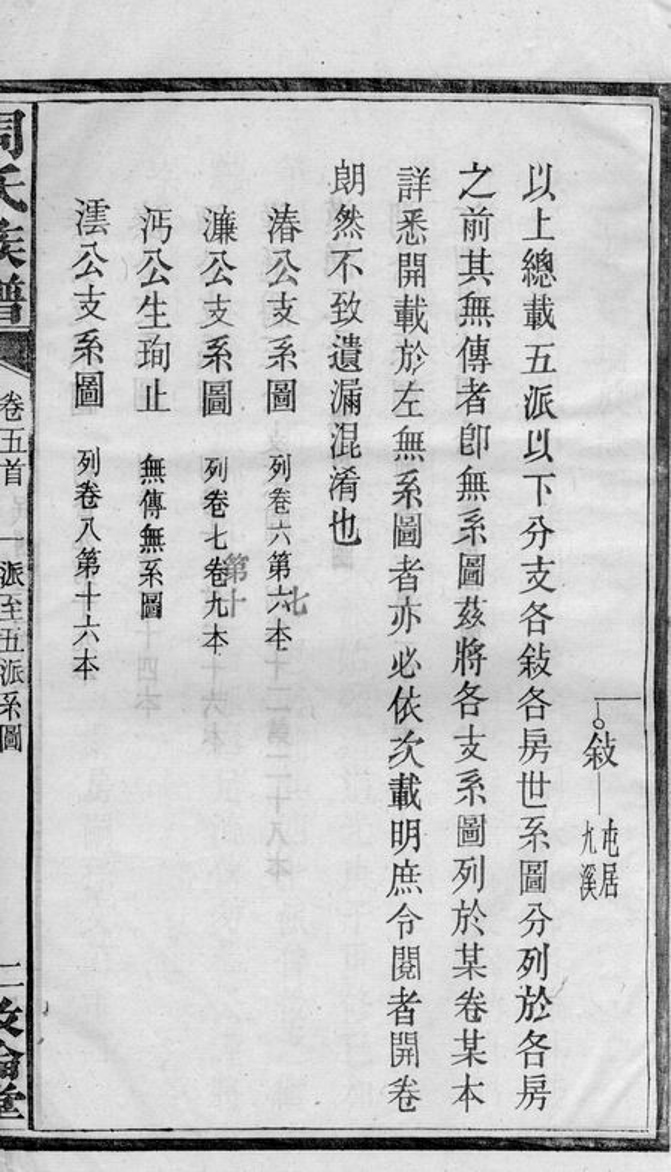 敍
屯居
九溪
以上總載五派以下分支各敍各房世系圖分列於各房
之前其無傳者卽無系圖茲將各支系圖列於某卷某本
詳悉開載於左無系圖者亦必依次載明庶令閱者開卷
朗然不致遺漏混淆也
湷公支系圖 列卷六第六七本
濂公支系圖 列卷七卷九第十本
沔公生珣止 無傳無系圖
澐公支系圖 列卷八第十六本
周氏族譜 卷五首 一派至五派系圖 敦倫堂